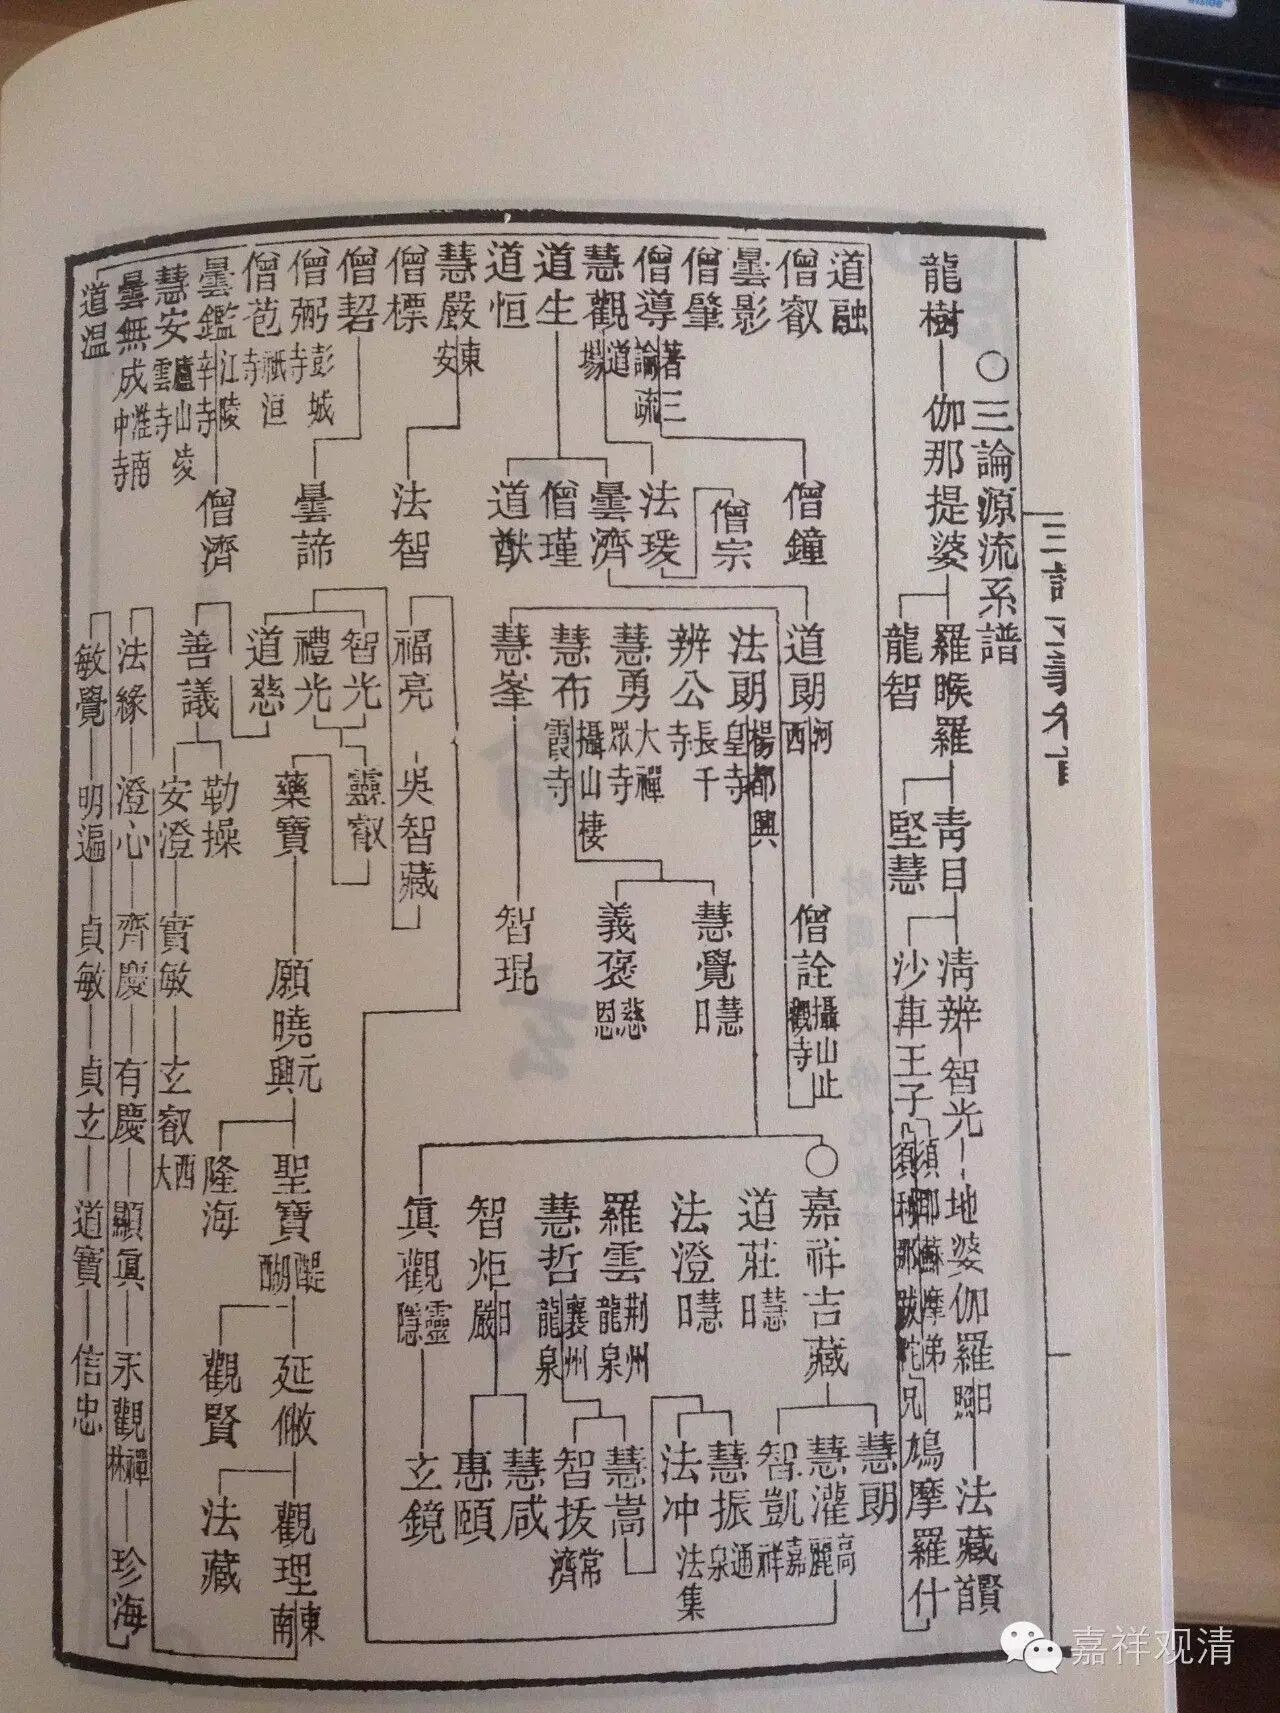 ○三論源流系譜
龍樹
伽那提婆
羅睺羅
龍智
青目
堅慧
清辨
智光
地婆伽羅 日照
法藏 賢首
沙車王子
須利那跋陀兄
須耶蘇摩弟
鳩摩羅什
道融
僧叡
曇影
僧肇
僧導 著三論疏
慧觀 道場
道生
道恒
慧嚴 東安
僧標
僧䂮
僧弼 彭城寺
僧苞 祇洹寺
曇鑑 江陵辛寺
慧安 廬山凌雲寺
曇無成 淮南中寺
道温
僧鐘
僧宗
法瑗
曇濟
僧瑾
道猷
法智
曇諦
僧濟
道朗 河西
僧詮 攝山止觀寺
法朗 楊都興皇寺
辨公 長千寺
慧勇 大禪眾寺
慧布 攝山棲霞寺
慧峯
慧覺 慧日
義褒 慈恩
智琨
○嘉祥吉藏
道莊 慧日
法澄 慧日
羅雲 荆州龍泉
慧哲 襄州龍泉
智炬 日嚴
眞觀 靈隱
慧朗
慧灌 高麗
智凱 嘉祥
慧振 通泉
法冲 法集
慧嵩
智拔 常濟
慧咸
惠頤
玄鏡
福亮
吳智藏
智光
禮光
道慈
靈叡
藥寶
願曉 元興
聖寶 醍醐
隆海
延僘
觀賢
觀理 東南
法藏
善議
勒操
安澄
實敏
玄叡 西大
法緣
澄心
齊慶
有慶
顯眞
永觀 禪林
珍海
敏覺
明遍
貞敏
貞玄
道寶
信忠
嘉祥观清